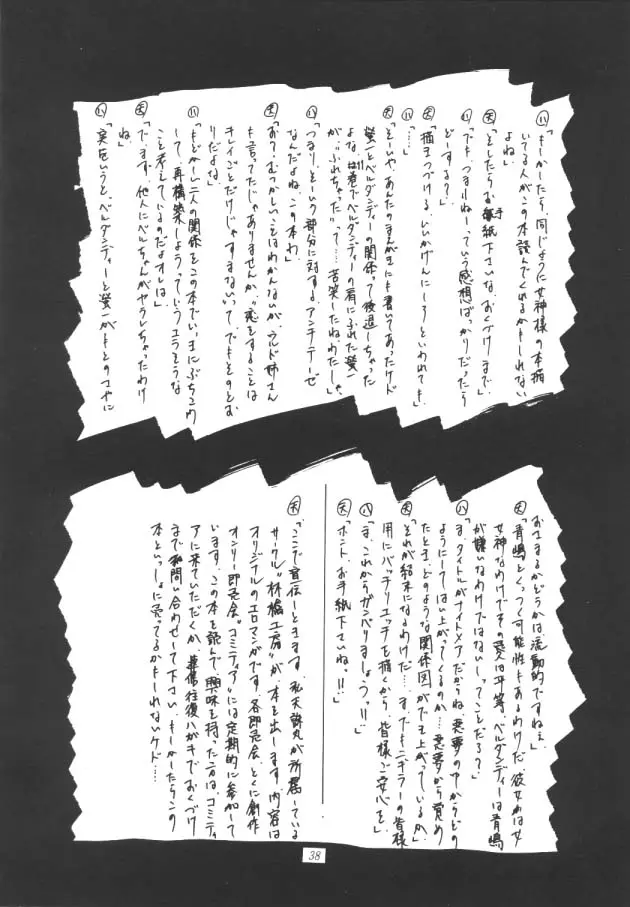 ㋩「もしかしたら、同じように女神様の本描
いてる人がこの本読んでくれるかもしれない
よね」
㋝「そしたらお手紙下さいな、おくづけまで」
㋩「でも、つまりねーっていう感想ばっかりだったら
どーする?」
㋝「描きつづける、いいかげんにしろっといわれても」
㋩「…」
㋝「そーいや、あんたのまんがにも書いてあったケド
螢一とベルダンディーの関係って後退しちゃった
よな、11巻でベルダンディーの肩にふれた螢一
が、"ふれちゃった"って…苦笑したねわたしゃ」
㋩「つまり、そーいう部分に対するアンチテーゼ
なんだよね、この本わ」
㋝「おう、むつかしいことはわかんないが、ウルド姉さん
も言ってたじゃありませんか、"恋をすることは
キレイごとだけじゃすまない"って、でもそのとお
りだよな」
㋩「もどかしい二人の関係をこの本でいっきにぶちこわ
して、再構築しようっていうエラそうな
こと考えているのだよオレは」
㋝「でもまず、他人にベルちゃんがヤラレちゃったわけ
ね」
㋩「実をいうと、ベルダンディーと螢一がもとのさやに
おさまるかどうかは流動的ですねぇ」
㋝「青嶋とくっつく可能性もあるわけだ、彼女は女
女神なわけでその愛は平等、ベルダンディーは青嶋
が嫌いなわけではないしってことだろ?」
㋩「ま、タイトルがナイトメアだからね、悪夢の中からどの
ようにしてはい上がってくるのか…悪夢から覚め
たとき、どのような関係図ができ上がっているか、
それが結末になるわけだ…、すでもニナラーの皆様
用にバッチリエッチを描くから、皆様ご安心を」
㋩「ま、これからガンバリましょうっ!!」
㋝「ホント、お手紙下さいね。!!」
㋝「ここで宣伝しときます、私天誅丸が所属している
サークル"林檎工房"が本を出します。内容は
オリジナルのエロマンガです。各即売会、とくに創作
オンリー即売会"コミティア"には定期的に参加して
います、この本を読んで興味を持った方は、コミティ
アに来ていただくか、葉書往復ハガキでおくづけ
まで御問い合わせて下さい、もしかしたらこの
本といっしょに売ってるかもしれないケド…
38